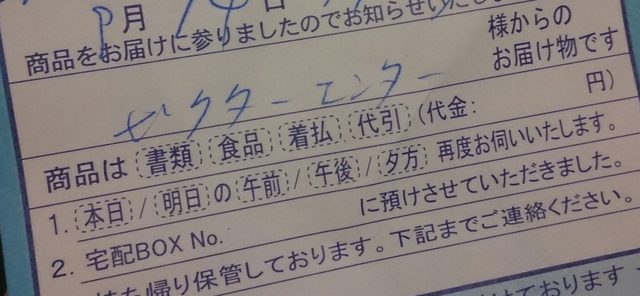 8月14日
商品をお届けに参りましたのでお知らせいたしま
ゼクターエンター 様からの
お届け物です
商品は 書類 食品 着払 代引 (代金: 円)
1. 本日 / 明日 の 午前 / 午後 / 夕方 再度お伺いいたします。
2. 宅配BOX No. に預けさせていただきました。
ち帰り保管しております。下記までご連絡ください。
けております